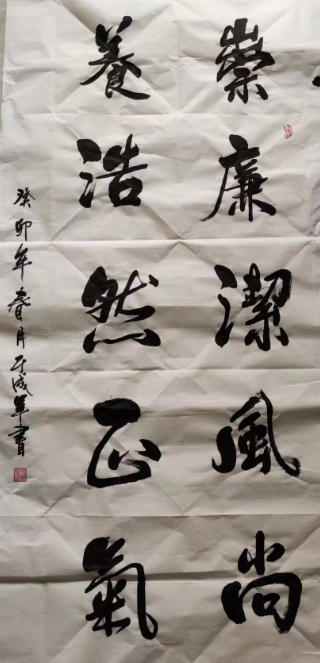 崇廉潔風尚
養浩然正氣
癸卯年春月于成年書